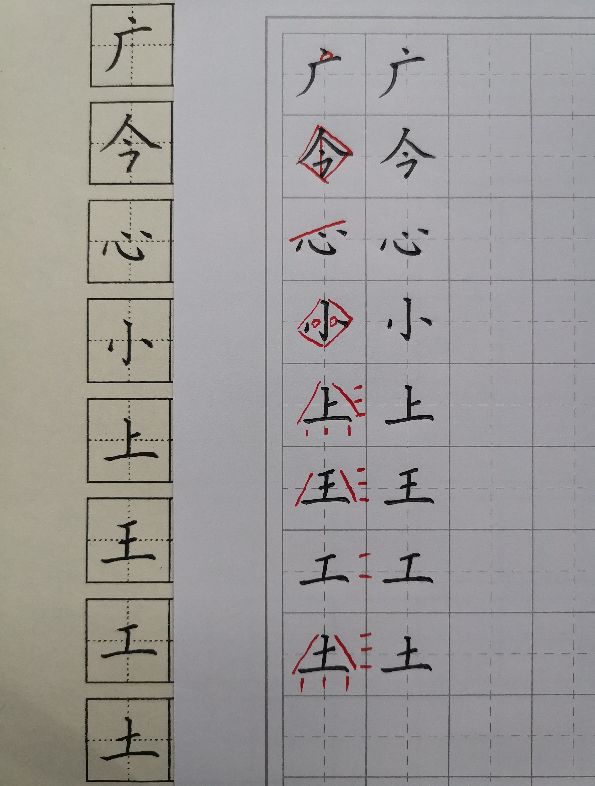 广 广 广
今 今 今
心 心 心
小 小 小
上 上 上
王 王 王
工 工 工
土 土 土